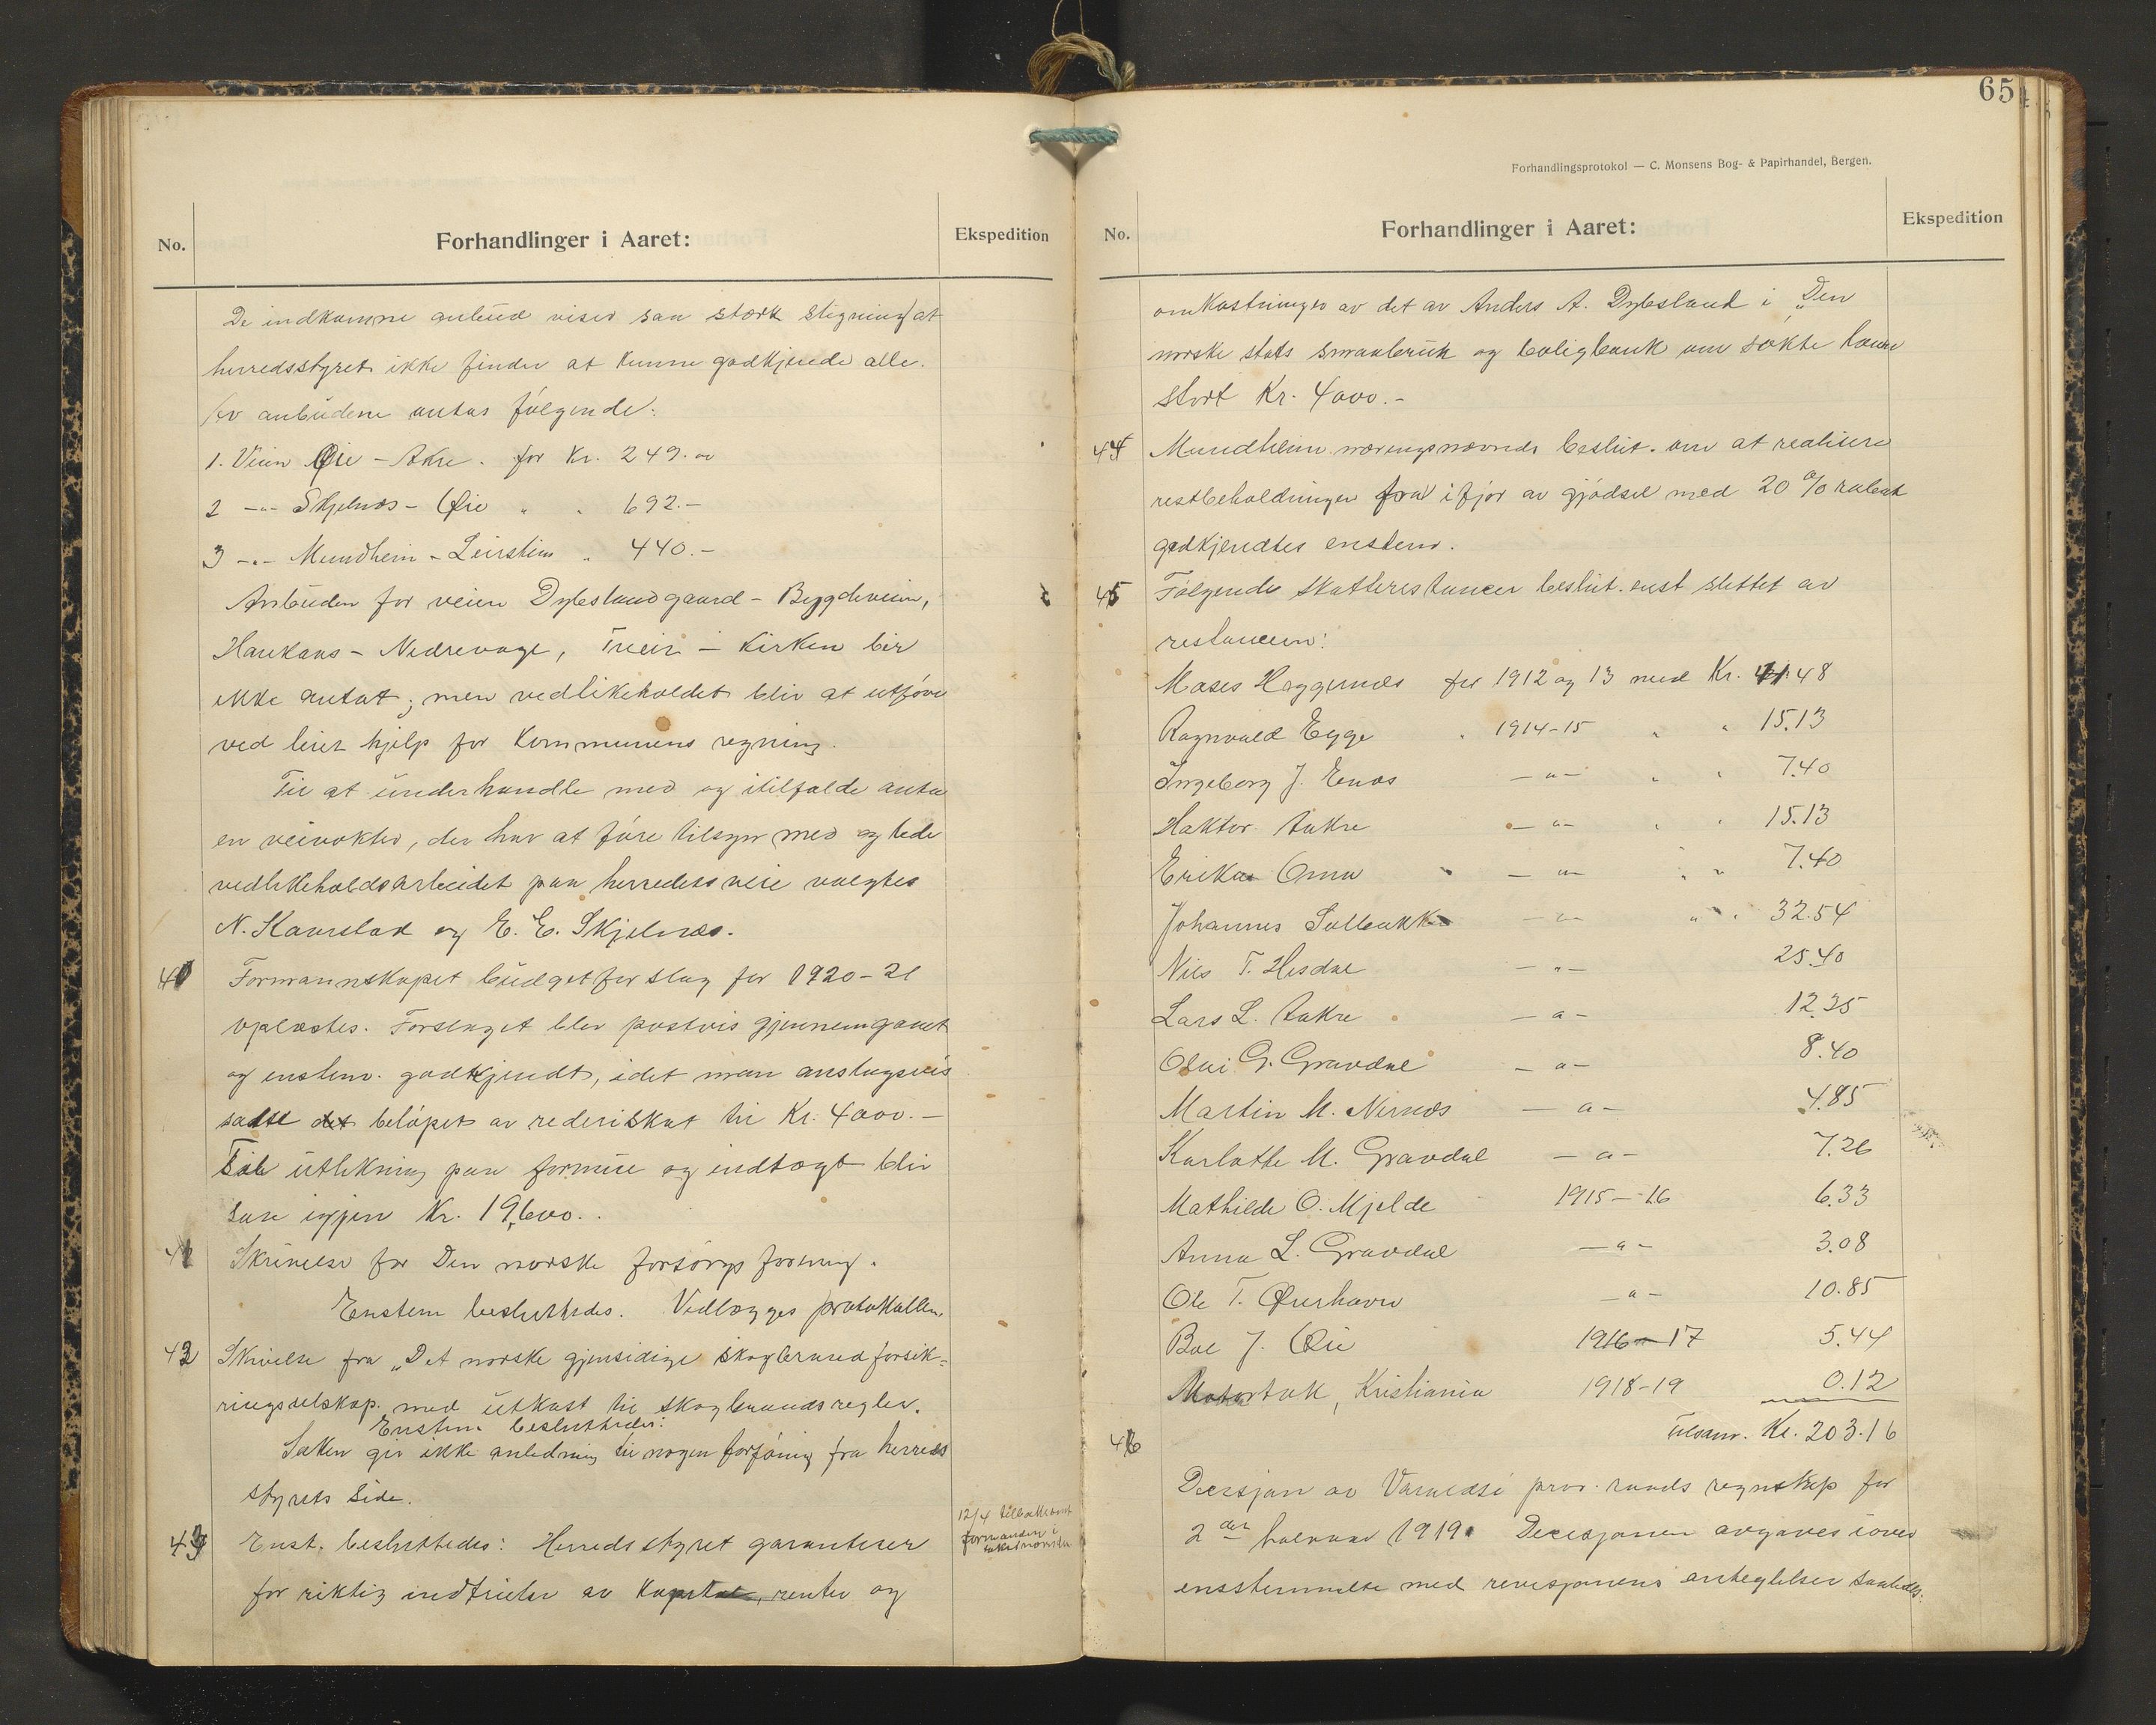 No.
Forhandlinger i Aaret:
Ekspedition
De indkomne anbud viser saa stærk stigning at
herredsstyret ikke finder at kunne godkjende alle.
Av anbudene antas følgende:
1. Veien Øie - Akre. for Kr. 249.00
2 -"- Skjelnæs - Øie " " 692.-
3 -"- Mundheim - Leirstein " 440.-
Anbuden for veien Dybslandgaard - Bygdeveien,
Haukaas - Nedrevage, - Kirken blir
ikke antat; men vedlikeholdet blir at utføre
ved leiet hjelp for kommunens regning.
Til at underhandle med og itilfælde anta
en veivokter, der har at føre tilsyn med og lede
vedlikeholdsarbeidet paa herredets veie valgtes
N. Kaurstad og E. E. Skjelnæs.
40 Formannskapet budgetforslag for 1920-21
oplæstes. Forslaget blev postvis gjennemgaaet
og enstem. godkjendt, idet man anslagsvis
satte det beløpet av rederiskat til Kr. 4000.-
Til utlikning paa formue og indtægt blir
saa igjen Kr. 19,600..
41 Skrivelse for Den norske forsørgs forening.
Enstem besluttedes. Vedlægges protokollen.
42 Skrivelse fra „Det norske gjensidige skogbrandforsik-
ringsselskap. med utkast til skogbrandsregler.
Enstem. besluttedes:
Saken gir ikke anledning til nogen forføining fra herreds
styrets side.
43 Enst. besluttedes: Herredsstyret garanterer
for riktig indfrielse av kapital, renter og
12/4 tilbakesent
formanden i
65
Forhandlingsprotokol — C. Monsens Bog- & Papirhandel, Bergen.
No.
Forhandlinger i Aaret:
Ekspedition
omkostninger av det av Anders A. Dybsland i „Den
norske stats smaabruk og boligbank om søkte laan
stort Kr. 4000.-
44 Mundheim næringsnævnds beslut. om at realisere
restbeholdningen fra ifjor av gjødsel med 20 % rabat
godkjendtes enstem.
45 Følgende skatterestancer beslut. enst slettet av
restancen:
Moses Heggernæs for 1912 og 13 med Kr. 41.48
Ragnvald Egge " 1914-15 " " 15.13
Ingeborg J. Enæs -"- " " 7.40
Haktor Aakre -"- " " 15.13
Erika Omu -"- " " 7.40
Johannes Solbakke -"- " " 32.54
Nils T. Hesdal -"- 25.40
Lars L. Aakre -"- 12.35
Olai G. Gravdal -"- 8.40
Martin M. Nernæs -"- 4.85
Karlotte M. Gravdal -"- 7.26
Mathilde O. Mjelde 1915-16 6.33
Anna L. Gravdal -"- 3.08
Ole T. Øierhavn -"- 10.85
Boe J. Øie 1916-17 5.44
Kristiania 1918-19 0.12
Tilsam. Kr. 203.16
46
Decisjon av Varaldsø prov. raads regnskap for
2den halvaar 1919. Decisjonen avgaves iover
ensstemmelse med revisjonens antegnelser saaledes: